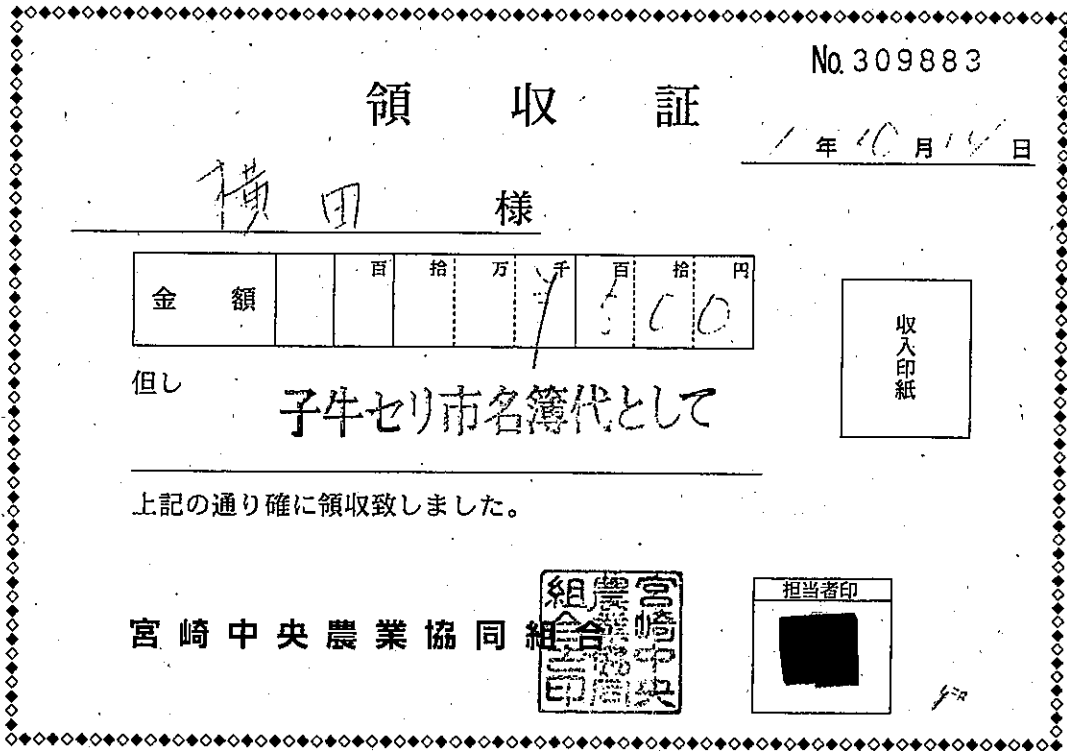 No. 309883
領収証
1年10月 日
横田 様
金額 百 拾 万 千 百 拾 円
¥500
但し
子牛セリ市名簿代として
収入印紙
上記の通り確に領収致しました。
宮崎中央農業協同組合
宮崎中央農業協同組合之印
担当者印